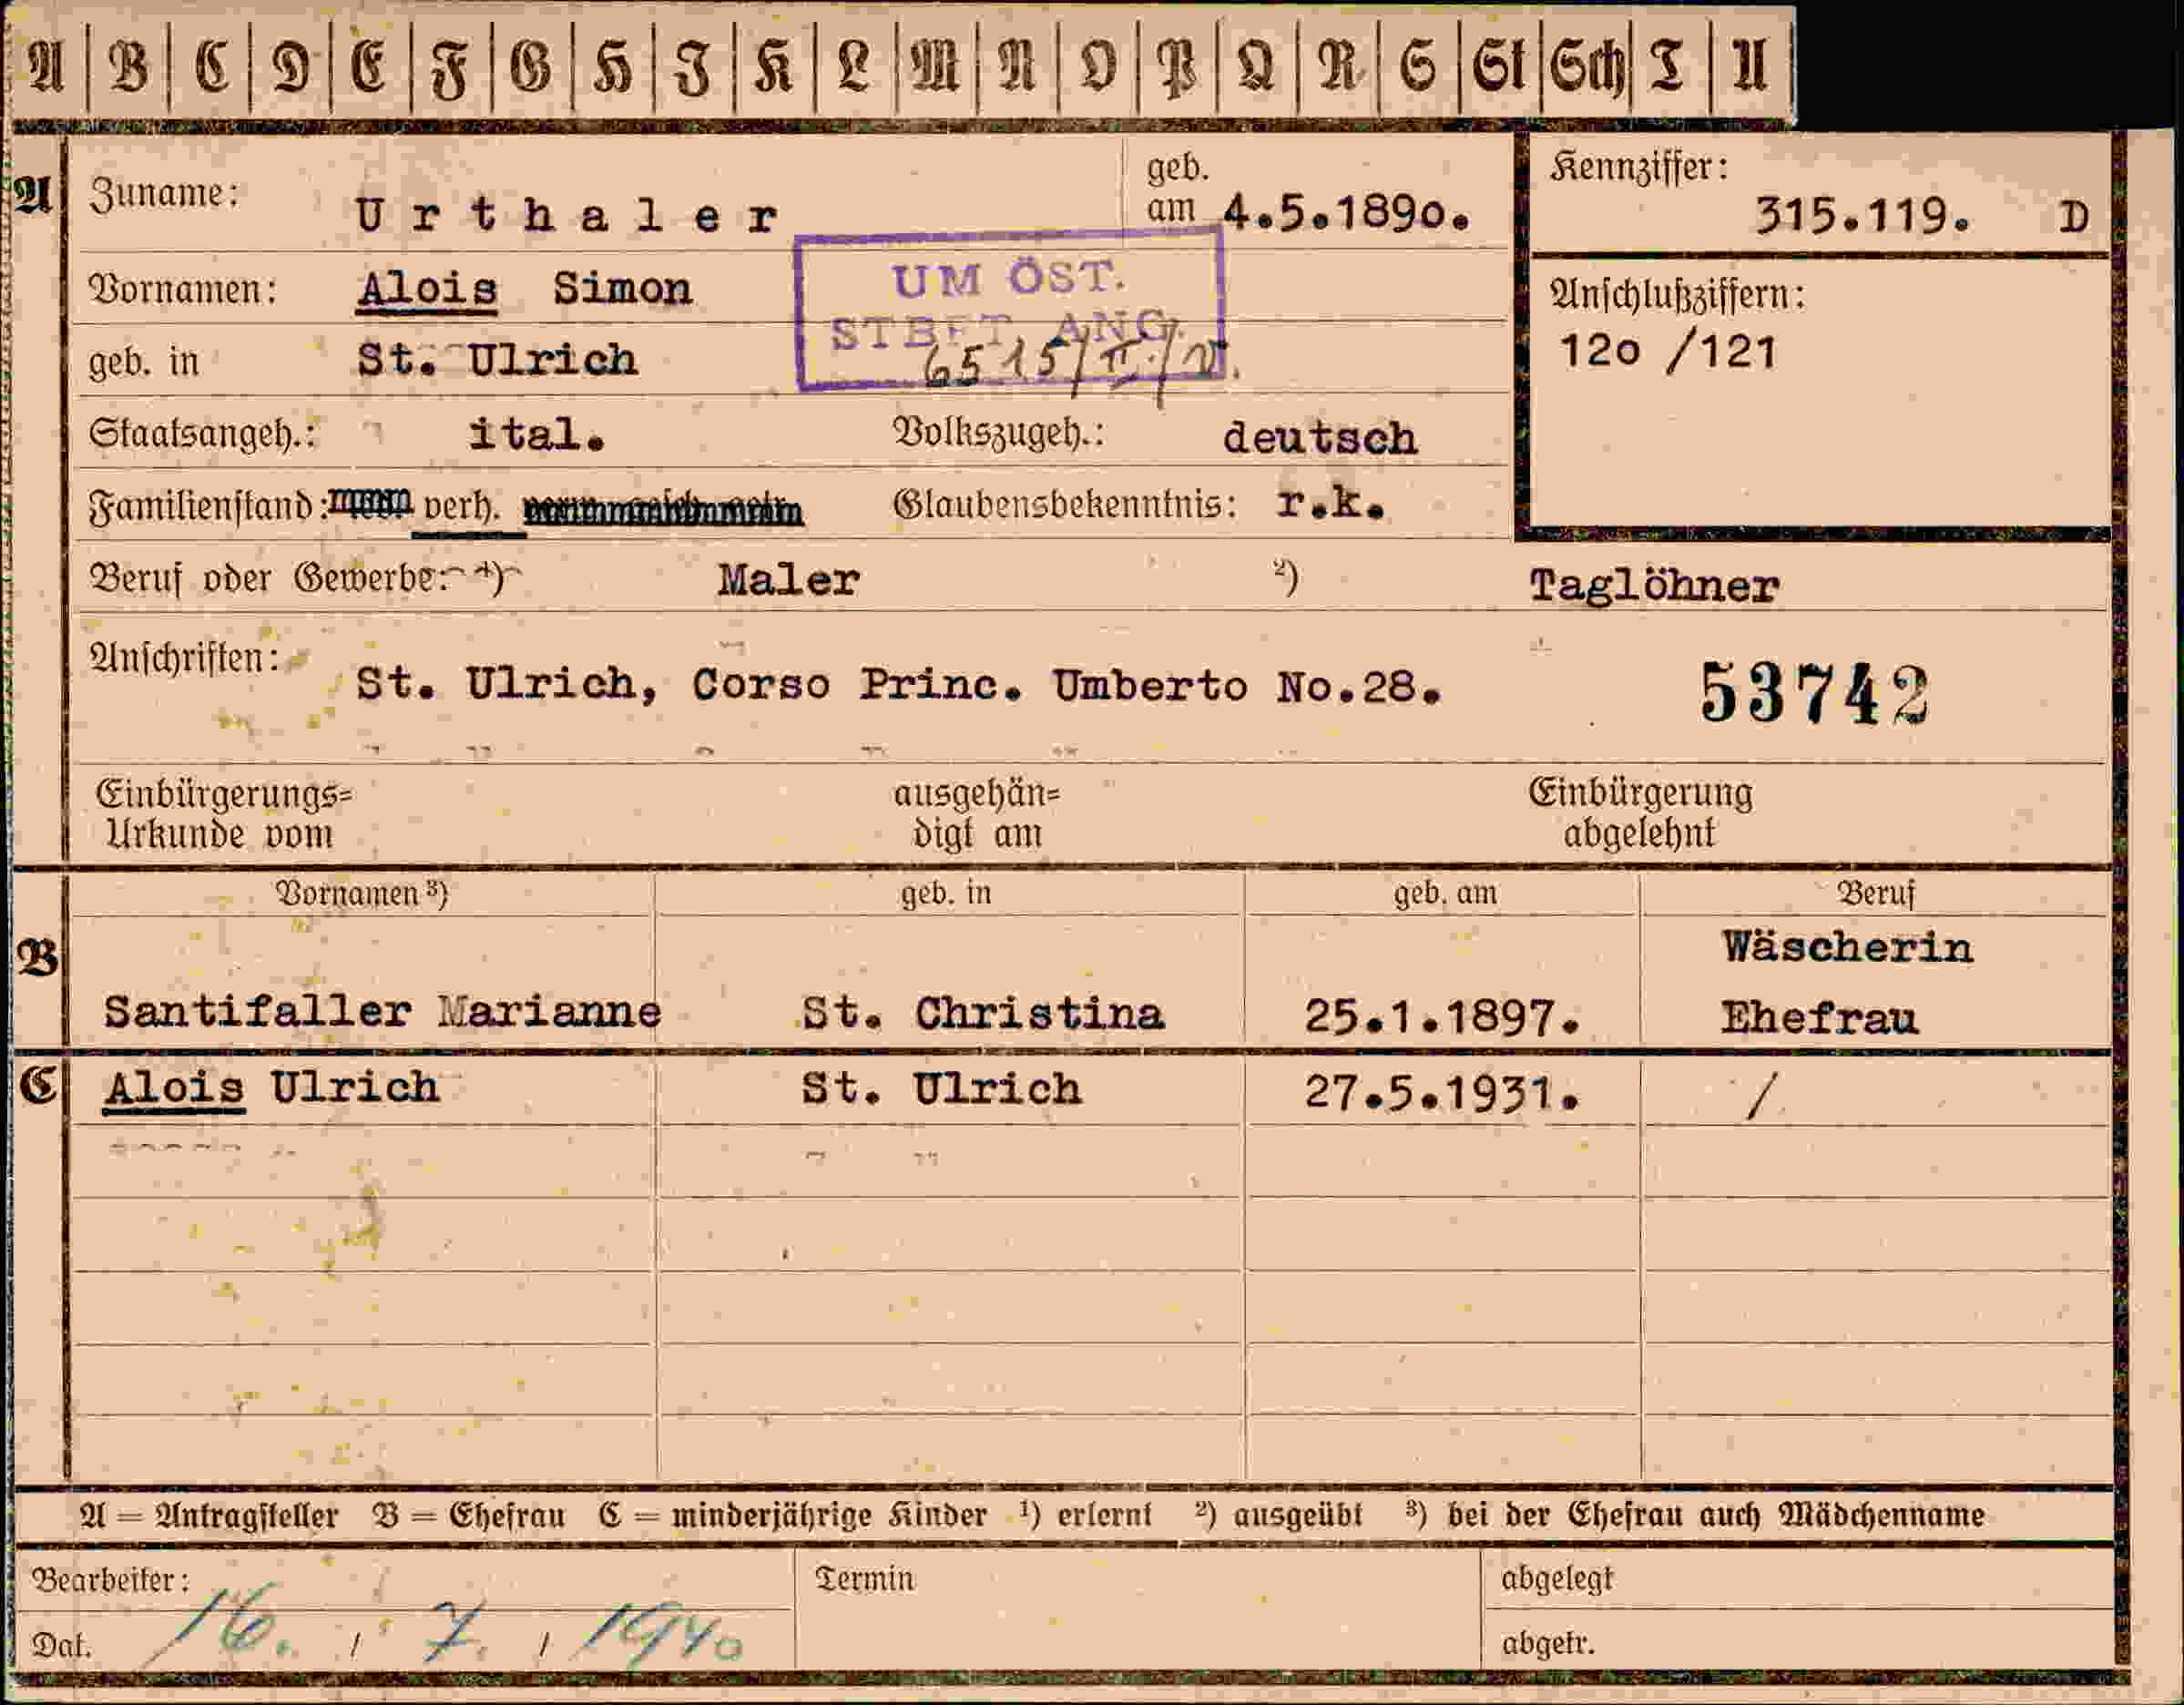 A B C D E F G H I K L M N O P Q R S St Sch T U
A Zuname: Urthaler geb. am 4.5.1890. Kennziffer: 315.119. D
Vornamen: Alois Simon UM ÖST. Anschlußziffern:
geb. in St. Ulrich STBFT. ANG. 120 /121
6515/II./
Staatsangeh.: ital. Volkszugeh.: deutsch
Familienstand: verh. Glaubensbekenntnis: r.k.
Beruf oder Gewerbe: ¹) Maler ²) Taglöhner
Anschriften: St. Ulrich, Corso Princ. Umberto No.28. 53742
Einbürgerungs= ausgehän= Einbürgerung
Urkunde vom digt am abgelehnt
Vornamen ³) geb. in geb. am Beruf
B Wäscherin
Santifaller Marianne St. Christina 25.1.1897. Ehefrau
C Alois Ulrich St. Ulrich 27.5.1931. /
A = Antragsteller B = Ehefrau C = minderjährige Kinder ¹) erlernt ²) ausgeübt ³) bei der Ehefrau auch Mädchenname
Bearbeiter: Termin abgelegt
Dat. 16. / 7. / 1940 abgetr.